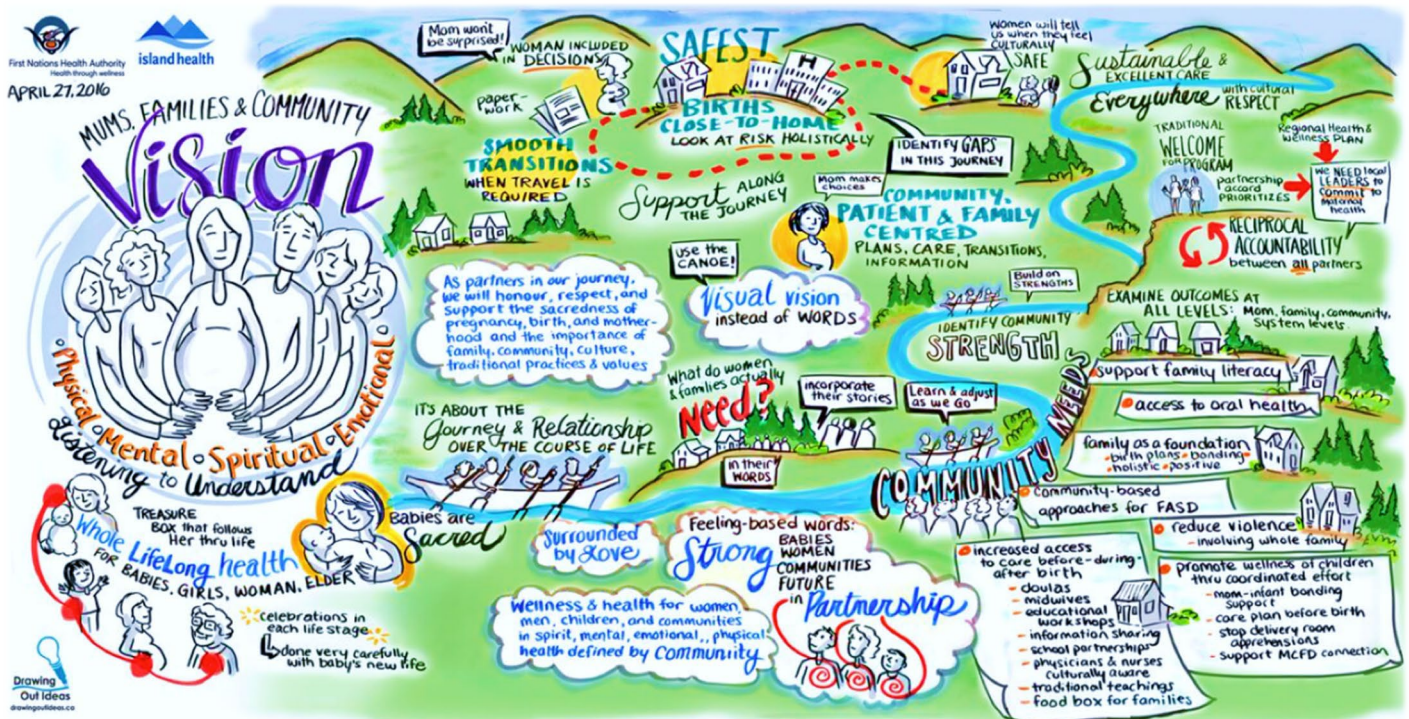 First Nations Health Authority
Health through wellness
island health
APRIL 27, 2016
MUMS, FAMILIES & COMMUNITY
Vision
Physical • Mental • Spiritual • Emotional
Listening to Understand
TREASURE
BOX that follows
Her thru life
Whole LifeLong health
FOR BABIES, GIRLS, WOMAN, ELDER
celebrations in
each life stage
done very carefully
with baby's new life
Drawing
Out Ideas
drawingoutideas.ca
Mom won't
be surprised!
WOMAN INCLUDED
IN DECISIONS
paper-
work
SMOOTH
TRANSITIONS
WHEN TRAVEL IS
REQUIRED
SAFEST
H
BIRTHS
CLOSE-TO-HOME
LOOK AT RISK HOLISTICALLY
Women will tell
us when they feel
CULTURALLY
SAFE
IDENTIFY GAPS
IN THIS JOURNEY
Support ALONG
THE JOURNEY
Mom makes
choices
COMMUNITY,
PATIENT & FAMILY
CENTRED
PLANS, CARE, TRANSITIONS,
INFORMATION
use the
CANOE!
Visual vision
instead of WORDS
As partners in our journey,
we will honour, respect, and
support the sacredness of
pregnancy, birth, and mother-
hood and the importance of
family, community, culture,
traditional practices & values
Build on
STRENGTHS
IDENTIFY COMMUNITY
STRENGTH
IT'S ABOUT THE
Journey & Relationship
OVER THE COURSE OF LIFE
What do women
& families actually
Need?
incorporate
their stories
in their
WORDS
Learn & adjust
as we GO
Babies are
Sacred
Surrounded
by Love
Feeling-based words:
Strong
BABIES
WOMEN
COMMUNITIES
FUTURE
in Partnership
Wellness & health for women,
men, children, and communities
in spirit, mental, emotional,, physical
health defined by Communiity
Sustainable &
EXCELLENT CARE
Everywhere with cultural
RESPECT
TRADITIONAL
WELCOME
FOR PROGRAM
partnership
accord
PRIORITIZES
Regional Health &
Wellness PLAN
we NEED local
LEADERS to
Commit to
Maternal
health
RECIPROCAL
ACCOUNTABILITY
between all partners
EXAMINE OUTCOMES AT
ALL LEVELS: Mom, family, community,
System levels.
COMMUNITY NEEDS
support family literacy
access to oral health
family as a foundation
• birth plans • bonding •
holistic • positive
community-based
approaches for FASD
reduce violence
- involving whole family
increased access
to care before-during-
after birth
- doulas
- midwives
- educational
workshops
- information sharing
- school partnerships
- physicians & nurses
culturally aware
- traditional teachings
- food box for families
promote wellness of children
thru coordinated effort
- mom-infant bonding
support
- care plan before birth
- stop delivery room
apprehensions
- support MCFD connection